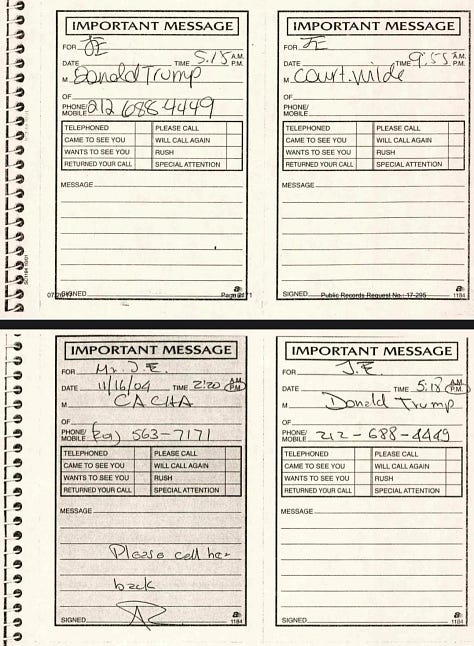 IMPORTANT MESSAGE
FOR JE
DATE TIME 5:15 A.M. P.M.
M Donald Trump
OF
PHONE/ MOBILE 212 688 4449
TELEPHONED PLEASE CALL
CAME TO SEE YOU WILL CALL AGAIN
WANTS TO SEE YOU RUSH
RETURNED YOUR CALL SPECIAL ATTENTION
MESSAGE
SIGNED
1184
IMPORTANT MESSAGE
FOR JE
DATE TIME 9:55 A.M. P.M.
M Court.wilde
OF
PHONE/ MOBILE
TELEPHONED PLEASE CALL
CAME TO SEE YOU WILL CALL AGAIN
WANTS TO SEE YOU RUSH
RETURNED YOUR CALL SPECIAL ATTENTION
MESSAGE
SIGNED
Public Records Request No.: 17-295
1184
IMPORTANT MESSAGE
FOR Mr. J.E.
DATE 11/16/04 TIME 2:20 A.M. P.M.
M CACHA
OF
PHONE/ MOBILE 563-7171
TELEPHONED PLEASE CALL
CAME TO SEE YOU WILL CALL AGAIN
WANTS TO SEE YOU RUSH
RETURNED YOUR CALL SPECIAL ATTENTION
MESSAGE
Please call her
back
SIGNED
1184
IMPORTANT MESSAGE
FOR J.E.
DATE TIME 5:18 A.M. P.M.
M Donald Trump
OF
PHONE/ MOBILE 212-688-4449
TELEPHONED PLEASE CALL
CAME TO SEE YOU WILL CALL AGAIN
WANTS TO SEE YOU RUSH
RETURNED YOUR CALL SPECIAL ATTENTION
MESSAGE
SIGNED
1184